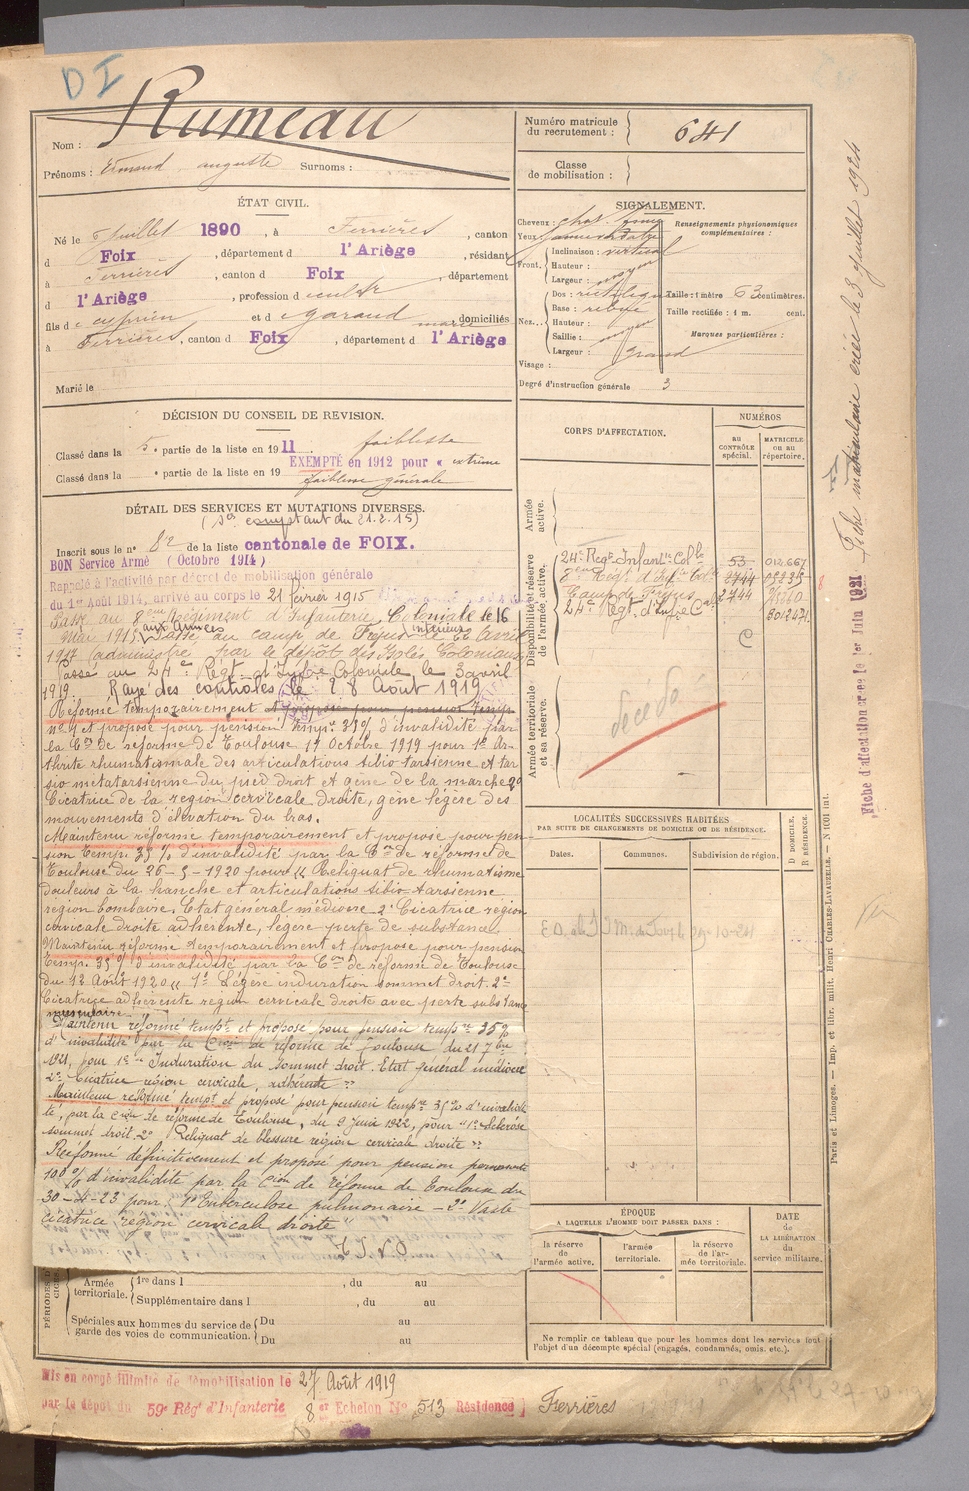 D I
Nom : Rumeau
Prénoms : Edmond auguste Surnoms :
Numéro matricule
du recrutement : 641
Classe
de mobilisation :
ÉTAT CIVIL.
Né le juillet 1890, à Ferrières, canton
d Foix, département d l'Ariège, résidant
à Ferrières, canton d Foix, département
d l'Ariège, profession d
fils de cyprien et de garaud marie domiciliés
à Ferrières, canton d Foix, département d l'Ariège
Marié le
SIGNALEMENT.
Cheveux : chat.
Yeux
Renseignements physionomiques
complémentaires :
Front. Inclinaison : vertical
Hauteur :
Largeur : moyen
Nez... Dos : rectiligne
Base : relevé
Hauteur :
Saillie : moyen
Largeur :
Visage : grand
Taille : 1 mètre 63 centimètres.
Taille rectifiée : 1 m. cent.
Marques particulières :
Degré d'instruction générale 3
DÉCISION DU CONSEIL DE REVISION.
Classé dans la 5e partie de la liste en 1911 faiblesse
Classé dans la partie de la liste en 19 EXEMPTÉ en 1912 pour « extrême
faiblesse générale
DÉTAIL DES SERVICES ET MUTATIONS DIVERSES.
(Ses comptant du 21.2.15)
Inscrit sous le n° 82 de la liste cantonale de FOIX.
BON Service Armé (Octobre 1914)
Rappelé à l'activité par décret de mobilisation générale
du 1er Août 1914, arrivé au corps le 21 février 1915
Passé au 8eme Régiment d'Infanterie Coloniale le 16
mai 1915 aux armées Passé au camp de Fréjus intérieur le avril
1917 (administré par le dépôt des Isolés Coloniaux
Passé au 24e Régt d'Infie Coloniale le 3 avril
1919. Rayé des contrôles le 28 Août 1919
Réformé temporairement et proposé pour pension temp
n° 1 et proposé pour pension temp. 35% d'invalidité par
la Con de réforme de Toulouse 17 Octobre 1919 pour 1° Ar-
thrite rhumatismale des articulations tibio tarsienne et tar
sio métatarsienne du pied droit et gêne de la marche 2°
Cicatrice de la région cervicale droite, gêne légère des
mouvements d'élévation du bras.
Maintenu réformé temporairement et proposé pour pen-
sion temp. 35% d'invalidité par la Con de réforme de
Toulouse du 26-5-1920 pour "Reliquat de rhumatisme
douleurs à la hanche et articulations tibio-tarsienne
région lombaire. Etat général médiocre 2° Cicatrice région
cervicale droite adhérente, légère perte de substance.
Maintenu réformé temporairement et proposé pour pension
temp. 35% d'invalidité par la Con de réforme de Toulouse
du 12 Août 1920 "1° Légère induration sommet droit. 2°
Cicatrice adhérente région cervicale droite avec perte substance
musculaire
Maintenu réformé tempt et proposé pour pension tempre 35%
d'invalidité par la Cion de réforme de Toulouse du 21 7bre
1921, pour 1° "Induration du sommet droit. Etat général médiocre
2° Cicatrice région cervicale, adhérente"
Maintenu réformé tempt et proposé pour pension tempre 35% d'invalidi
té, par la Cion de réforme de Toulouse, du 9 juin 1922, pour "1° Sclérose
sommet droit. 2° Reliquat de blessure région cervicale droite"
Réformé définitivement et proposé pour pension permanente
100% d'invalidité par la Cion de réforme de Toulouse du
30-4-23 pour: 1° Tuberculose pulmonaire - 2° Vaste
cicatrice région cervicale droite"
CORPS D'AFFECTATION.
NUMÉROS
AU
CONTRÔLE
spécial.
MATRICULE
OU AU
répertoire.
Armée
active.
Disponibilité et réserve
de l'armée active.
24e Régt Infantie Colle 53 012.667
8eme Régt d'Infie Colle 2744
Camp de Fréjus 2744
24e Régt d'Infie Cole
C
Armée territoriale
et sa réserve.
décédé
LOCALITÉS SUCCESSIVES HABITÉES
PAR SUITE DE CHANGEMENTS DE DOMICILE OU DE RÉSIDENCE.
Dates.
Communes.
Subdivision de région.
D DOMICILE.
R RÉSIDENCE.
ÉPOQUE
A LAQUELLE L'HOMME DOIT PASSER DANS :
la réserve
de
l'armée active.
l'armée
territoriale.
la réserve
de l'ar-
mée territoriale.
DATE
de
LA LIBÉRATION
du
service militaire.
Ne remplir ce tableau que pour les hommes dont les services font
l'objet d'un décompte spécial (engagés, condamnés, omis. etc.).
Armée
territoriale. 1re dans l , du au
Supplémentaire dans l , du au
Spéciales aux hommes du service de
garde des voies de communication. Du au
Du au
Mis en congé illimité de démobilisation le 27 Août 1919
par le dépôt du 59e Régt d'Infanterie 8er Echelon No 513 Résidence Ferrières
Fiche matriculaire créée le 3 juillet 1924
Fiche d'affectation créée le 1er Juin 1921
Paris et Limoges. — Imp. et libr. milit. Henri CHARLES-LAVAUZELLE. — N